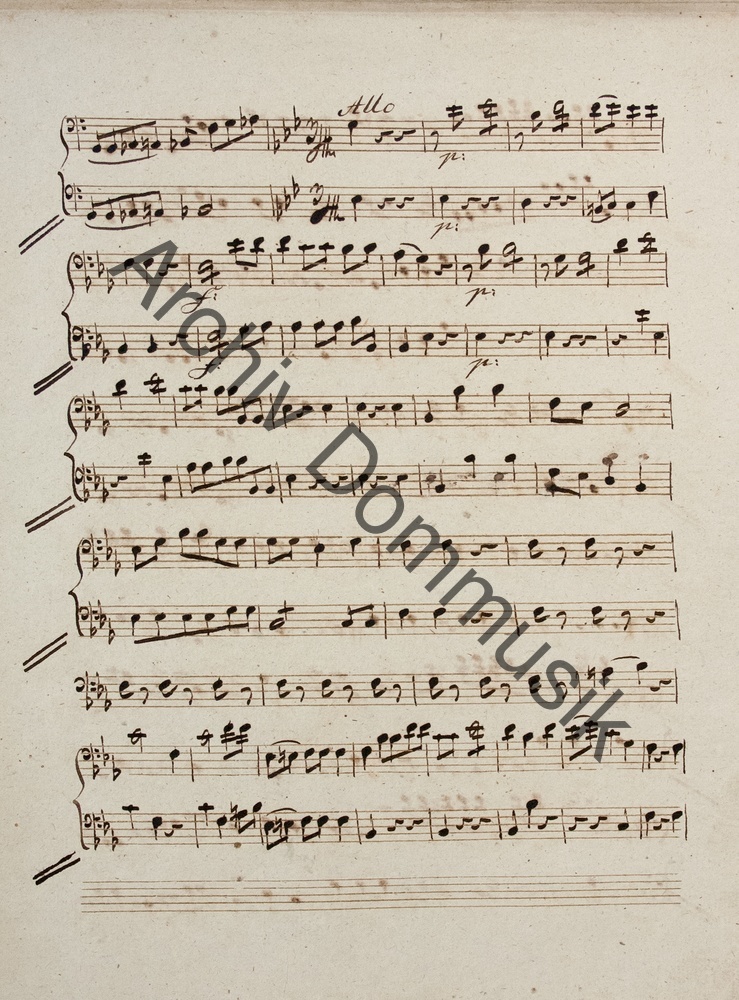 Allo
p:
p:
f:
p:
f:
p:
Archiv Dommusik